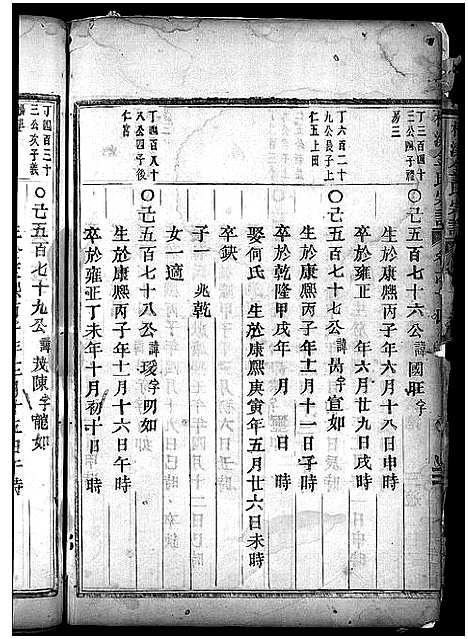 丁三百四十
三公四子禮
〇己五百七十六公諱國旺字
生於康熙丙子年六月十八日申時
卒於雍正 年六月廿九日戌時
丁六百二十
九公長子上
仁五上田
〇己五百七十七公諱 字宣如
生於康熙丙子年十二月十一日子時
卒於乾隆甲戌年 月 日 時
娶何氏 生於康熙庚寅年五月廿六日未時
卒缺
子一 兆乾
女一適
丁四百八十
八公四子後
仁宮
〇己五百七十八公諱琰字明如
生於康熙丙子年十一月十六日午時
卒於雍正丁未年十月初十日 時
丁四百三十
三公次子義
〇己五百七十九公諱 陳字龍如